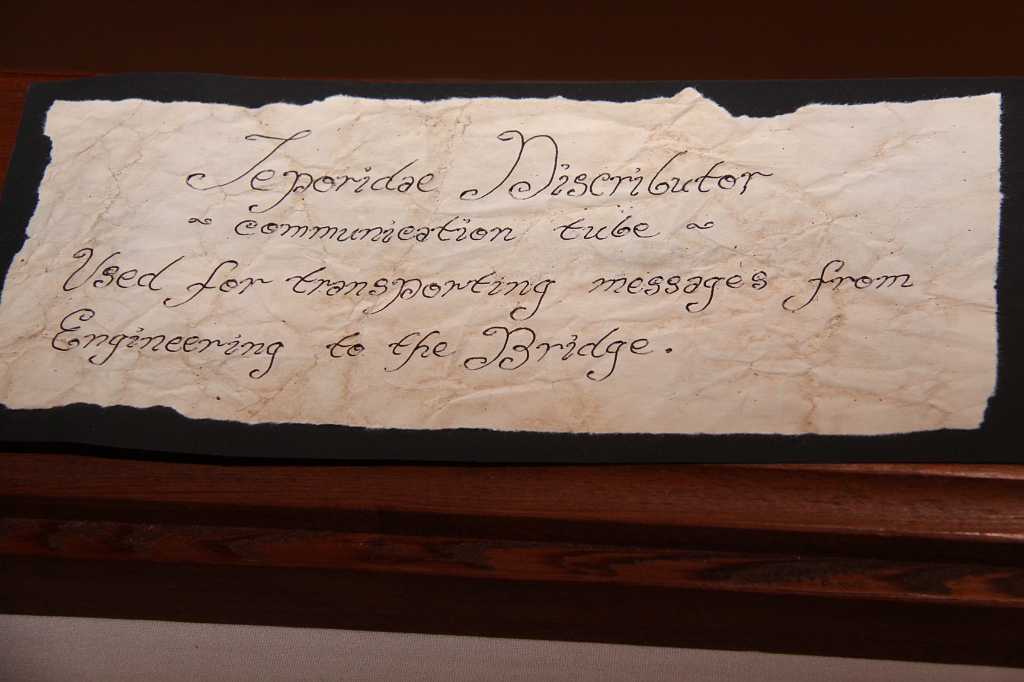 Teporidae Discributor
~ communication tube ~
Used for transporting messages from
Engineering to the Bridge.